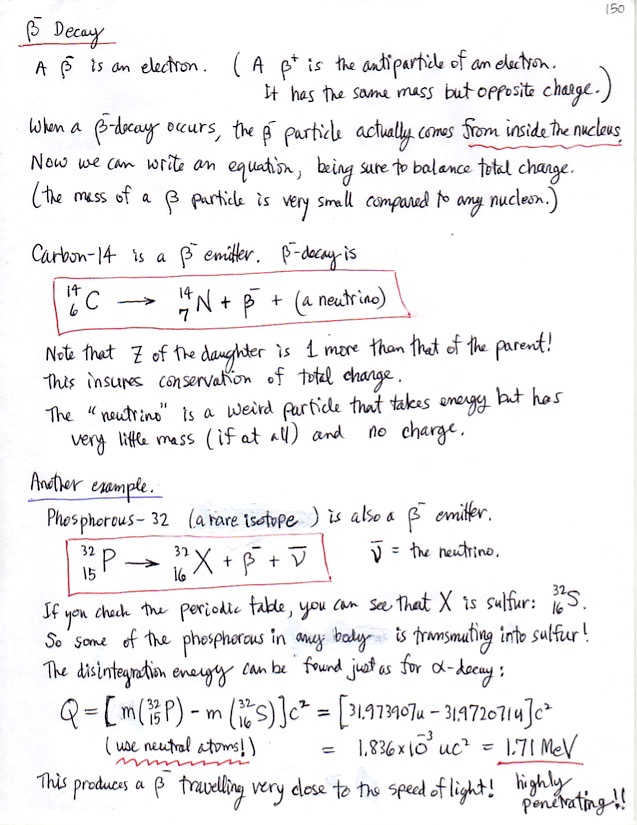 150
β⁻ Decay
A β⁻ is an electron. (A β⁺ is the antiparticle of an electron.
It has the same mass but opposite charge.)
When a β⁻-decay occurs, the β⁻ particle actually comes from inside the nucleus.
Now we can write an equation, being sure to balance total charge.
(the mass of a β particle is very small compared to any nucleon.)
Carbon-14 is a β⁻ emitter. β⁻-decay is
¹⁴₆C → ¹⁴₇N + β⁻ + (a neutrino)
Note that Z of the daughter is 1 more than that of the parent!
This insures conservation of total charge.
The "neutrino" is a weird particle that takes energy but has
very little mass (if at all) and no charge.
Another example.
Phosphorous-32 (a rare isotope) is also a β⁻ emitter.
³²₁₅P → ³²₁₆X + β⁻ + ν̄ ν̄ = the neutrino.
If you check the periodic table, you can see that X is sulfur: ³²₁₆S.
So some of the phosphorous in any body is transmuting into sulfur!
The disintegration energy can be found just as for α-decay:
Q = [m(³²₁₅P) - m(³²₁₆S)]c² = [31.973907u - 31.972071u]c²
(use neutral atoms!) = 1.836×10⁻³ uc² = 1.71 MeV
This produces a β⁻ travelling very close to the speed of light! highly
penetrating!!